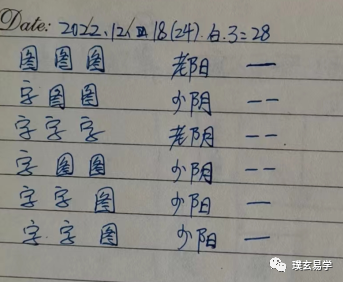 Date: 2022.12/18(24).白.3=28
图 图 图 老阳 —
字 图 图 少阴 --
字 字 字 老阴 --
字 图 图 少阴 --
字 字 图 少阳 —
字 字 图 少阳 —
璞玄易学